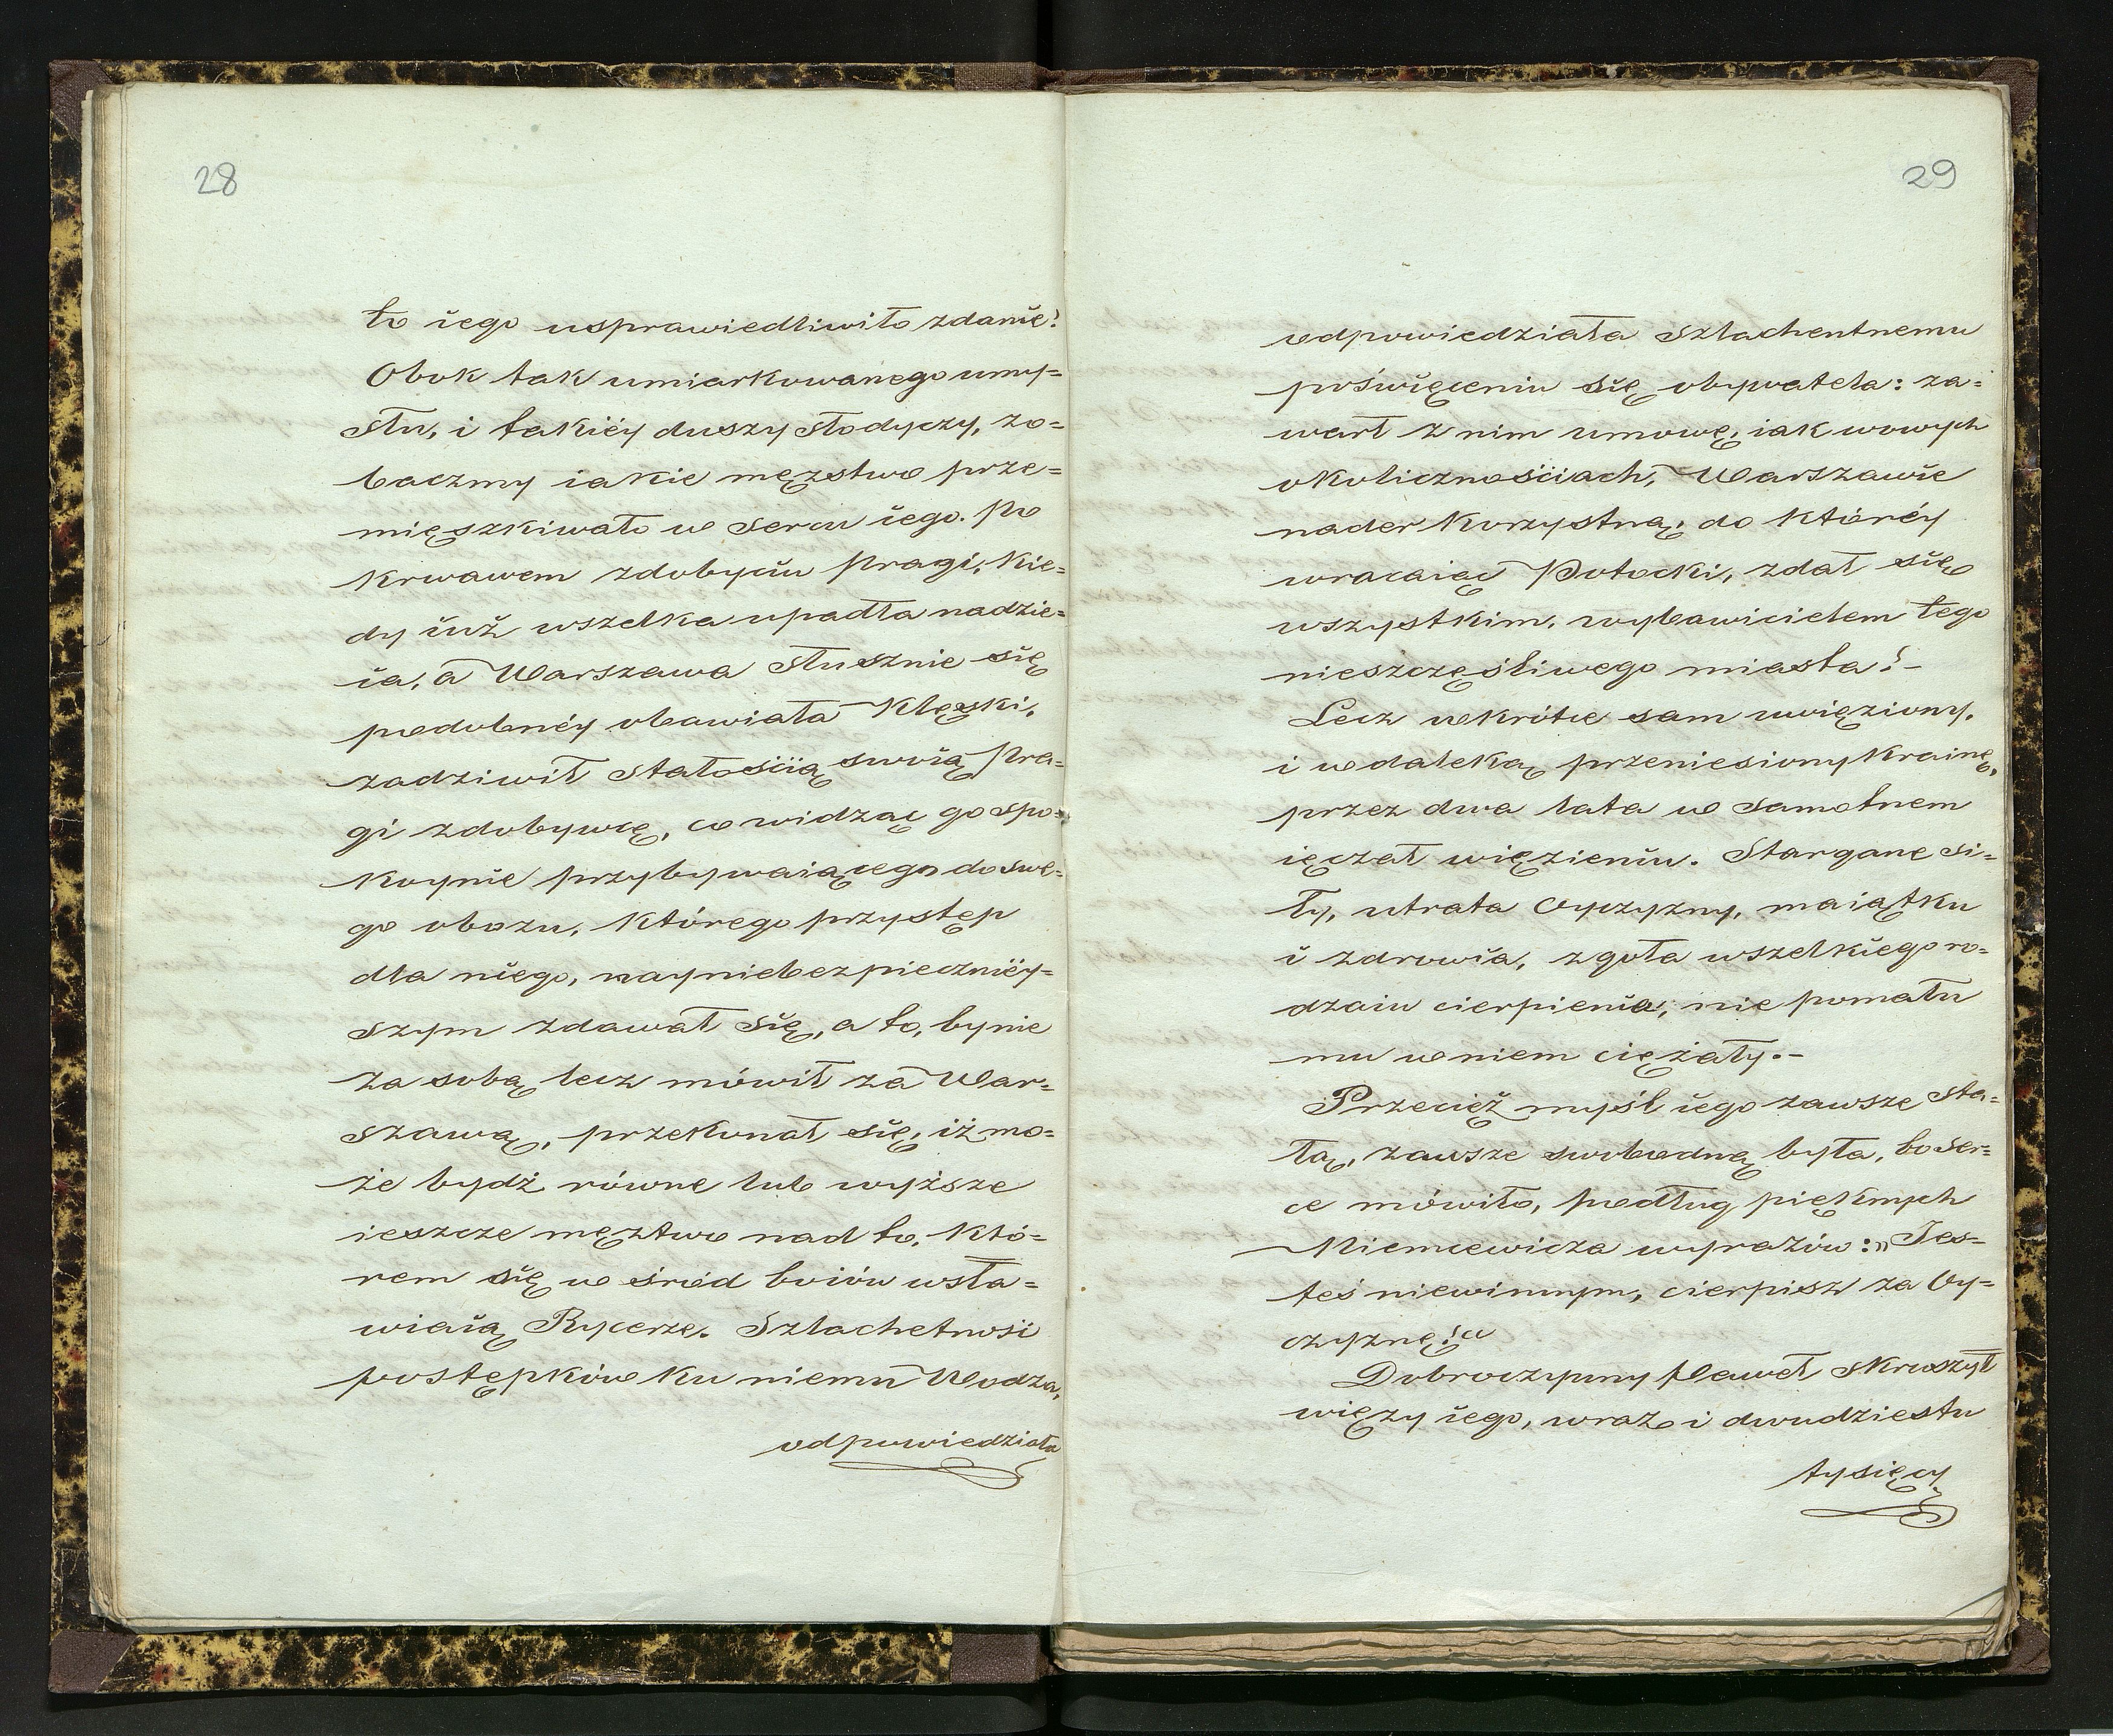 28
ło iego usprawiedliwiło zdanie!
Obok tak umiarkowanego umy=
słu, i takiéy duszy słodyczy, zo=
baczmy iakie męzstwo prze=
mięszkiwało w sercu iego. Po
krwawem zdobyciu Pragi, kie=
dy iuż wszelka upadła nadzie=
ia, a Warszawa słusznie się
podobnéy obawiała klęski,
zadziwił stałością swoią Pra=
gi zdobywcę, co widząc go spo=
koynie przybywaiącego do swe=
go obozu, którego przystęp
dla niego, nayniebezpieczniéy=
szym zdawał się, a to, by nie
za sobą lecz mówił za War=
szawą, przekonał się, iż mo=
że bydź równe lub wyższe
ieszcze męztwo nad to, któ=
rem się w śród boiów wsła=
wiaią Rycerze. Szlachetność
postępków ku niemu Wodza,
odpowiedziała
29
odpowiedziała szlachentnemu
poświęceniu się obywatela: za=
warł z nim umowę, iak w owych
okolicznościach, Warszawie
nader korzystną; do któréy
wracaiąc Potocki, zdał się
wszystkim, wybawicielem tego
nieszczęśliwego miasta! –
Lecz wkrótce sam uwięziony,
i w daleką przeniesiony krainę,
przez dwa lata w samotnem
ięczał więzieniu. Stargane si=
ły, utrata Oyczyzny, maiątku
i zdrowia, zgoła wszelkiego ro=
dzaiu cierpienia, nie pomału
mu w niem ciężały. –
Przecież myśl iego zawsze sta=
łą, zawsze swobodną była, bo ser=
ce mówiło, podług pięknych
Niemcewicza wyrazów: „Ies=
teś niewinnym, cierpisz za Oy=
czyznę!“
Dobroczynny Paweł skruszył
więzy iego, wraz i dwudziestu
tysięcy